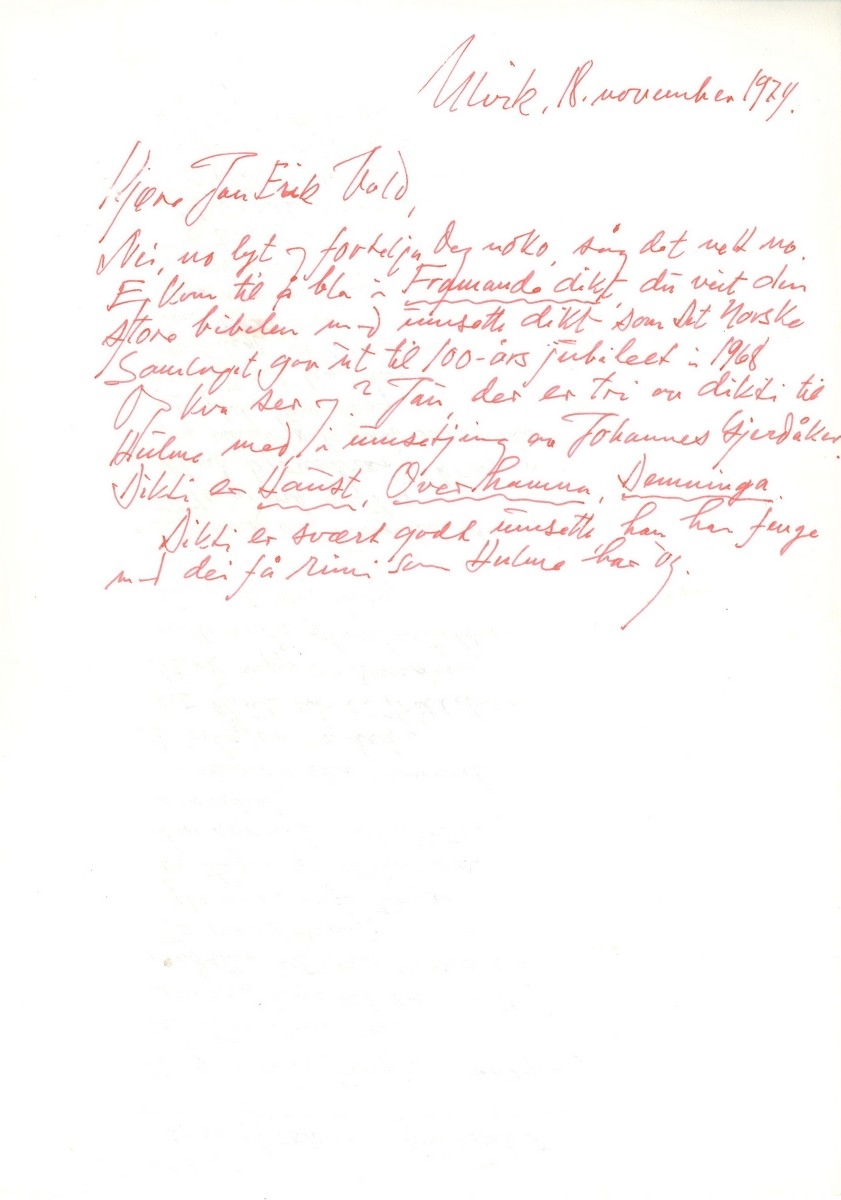 Ulvik, 18. november 1974.
Kjære Jan Erik Vold,
Nei, no lyt eg fortelja deg noko, såg det nett no.
Eg kom til å bla i Framande dikt, du veit den
store bibelen med umsette dikt som Det Norske
Samlaget gav ut til 100-års jubileet i 1968
Og kva ser eg? Jau, der er tri av dikti til
Hulme med, i umsetjing av Johannes Gjerdåker.
Dikti er Haust, Over hamna, Demninga.
Dikti er svært godt umsette, han har fenge
med dei få rimi som Hulme har òg.